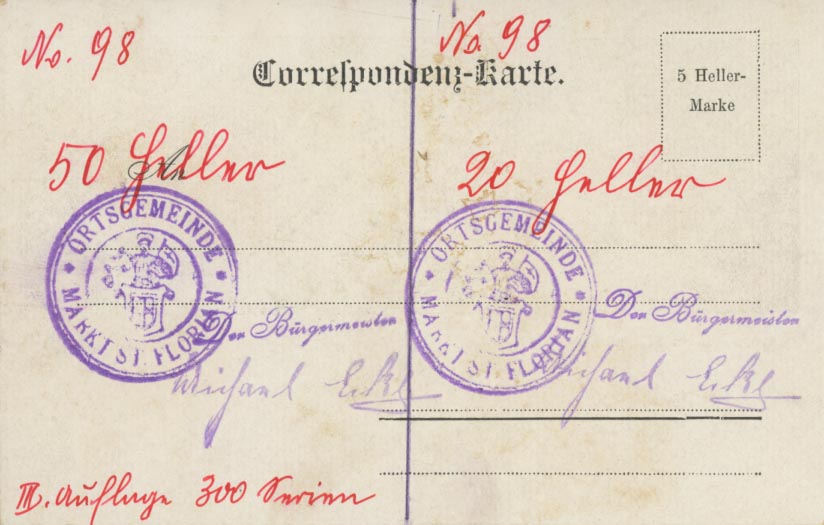 No. 98
No. 98
Correspondenz-Karte.
5 Heller-
Marke
50 Heller
20 Heller
ORTSGEMEINDE
MARKT ST. FLORIAN
Der Bürgermeister
Michael
ORTSGEMEINDE
MARKT ST. FLORIAN
Der Bürgermeister
Michael
III. Auflage 300 Serien